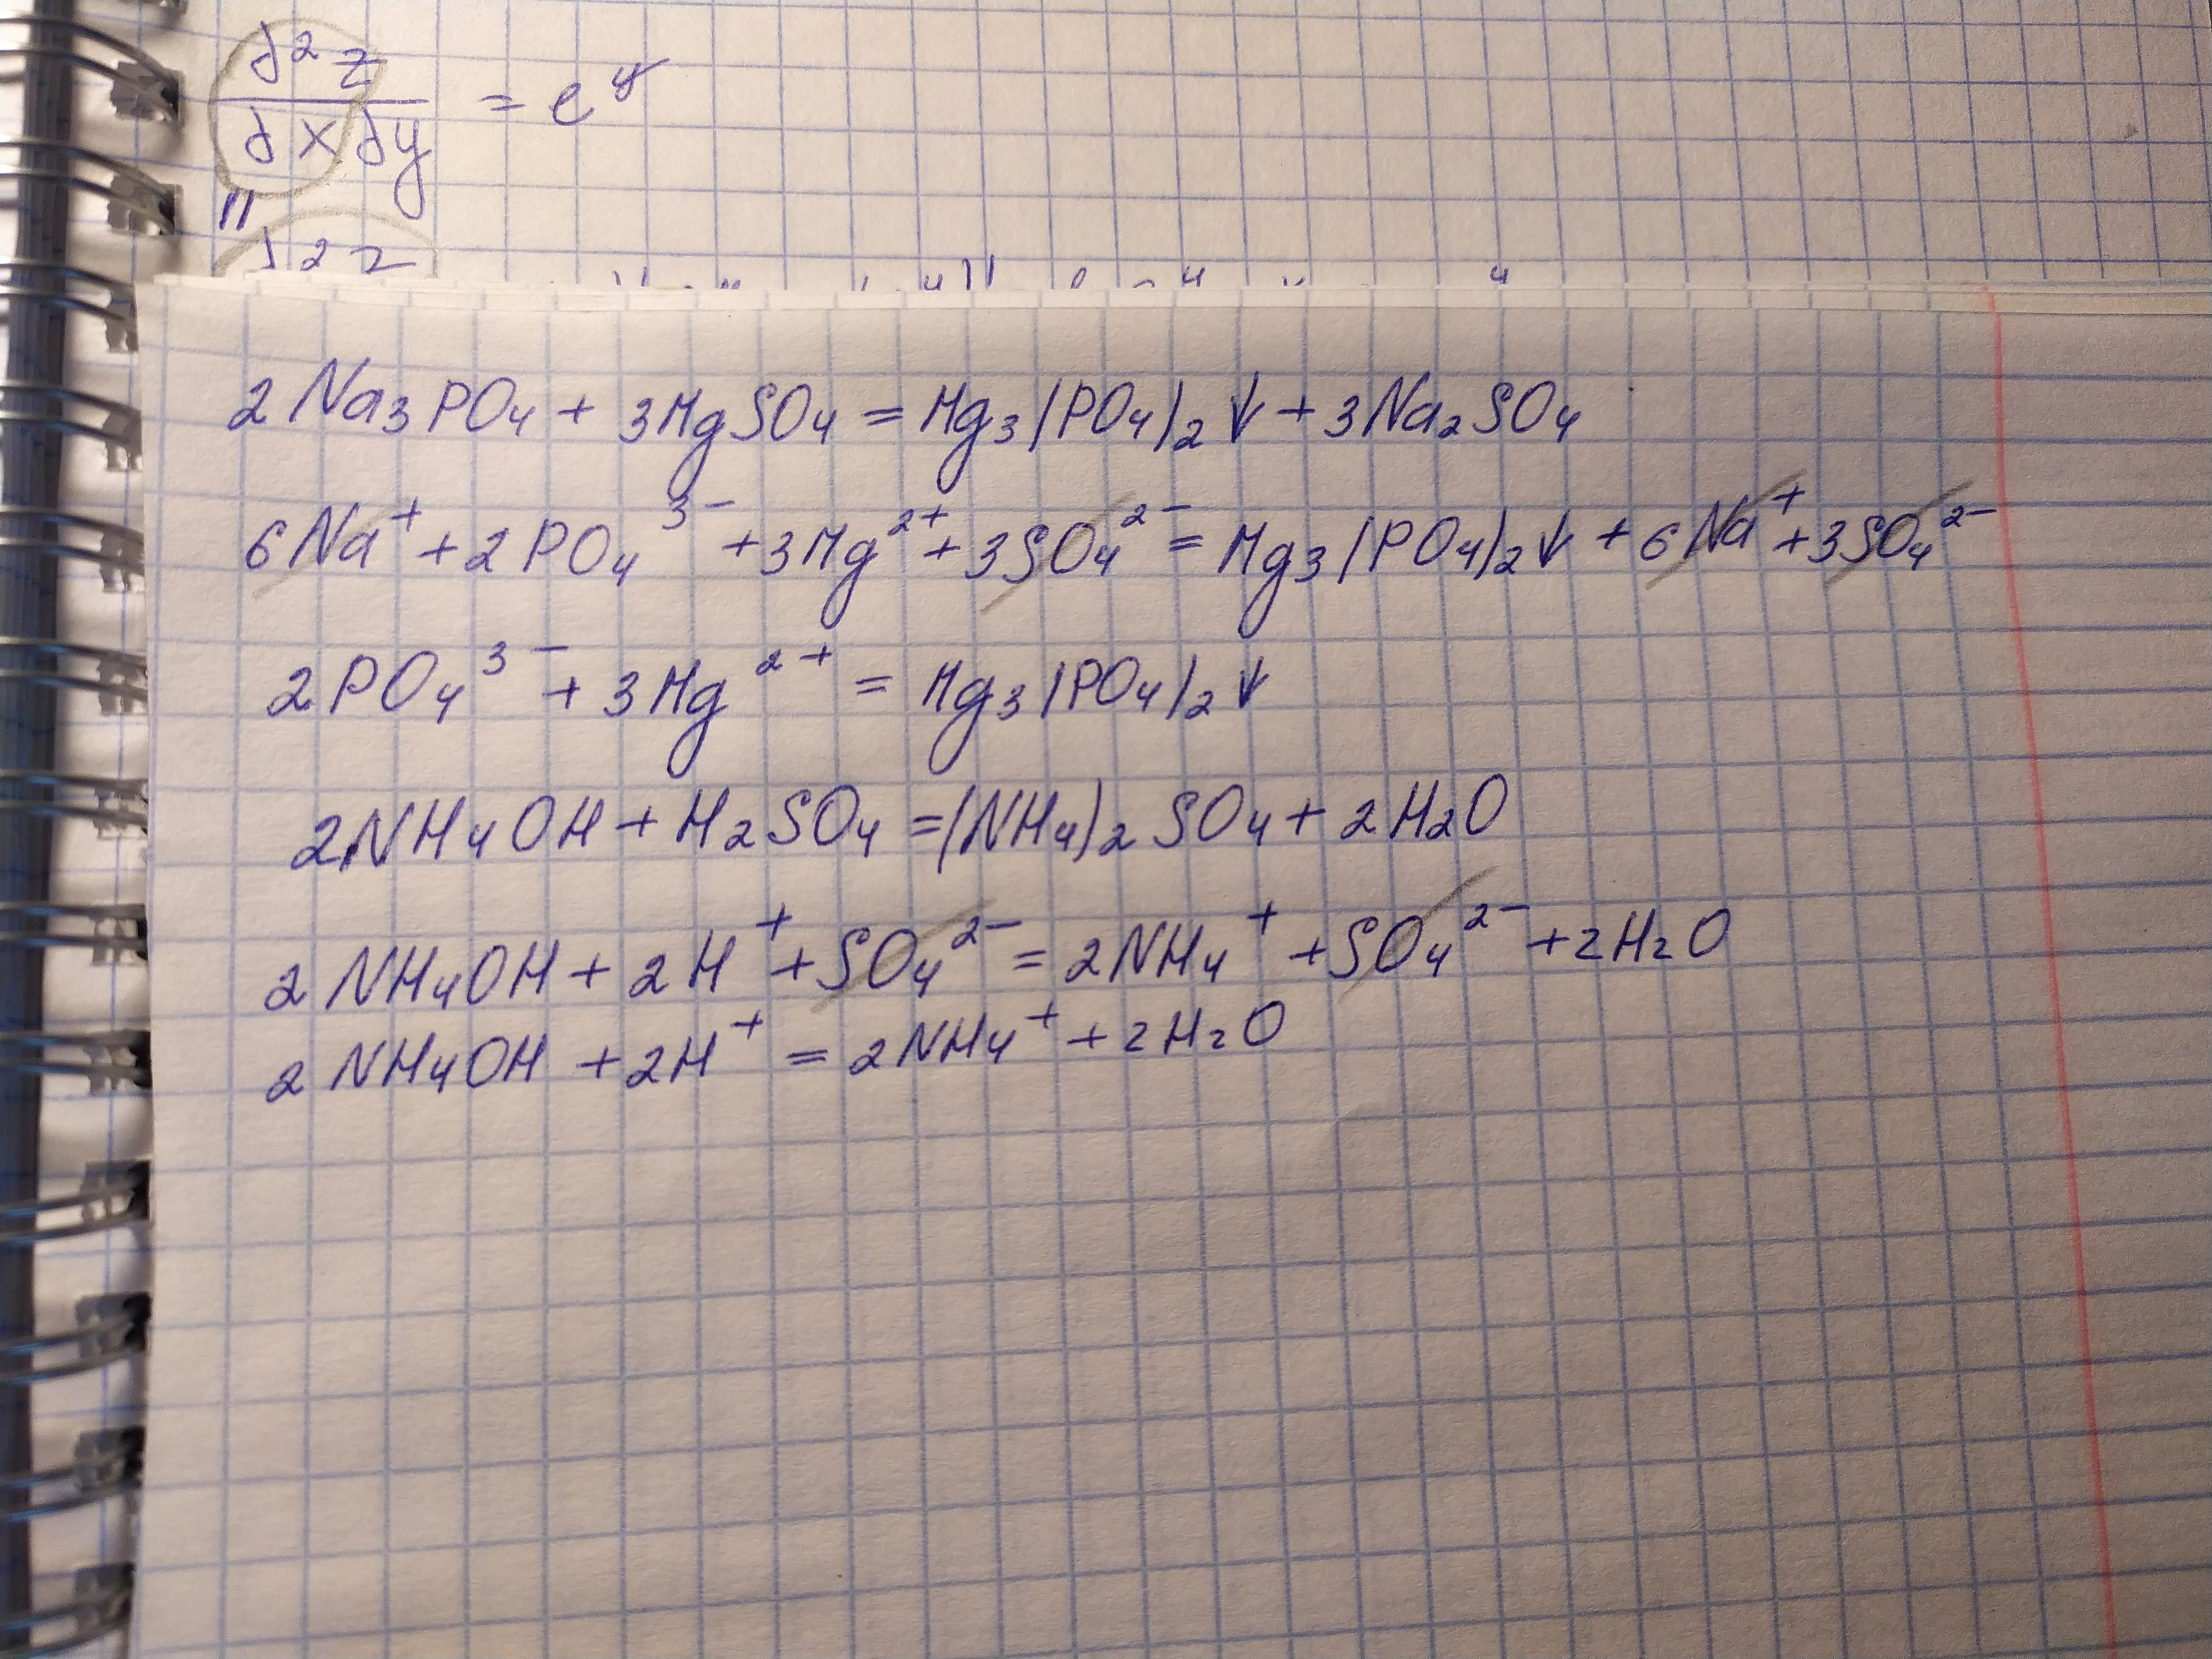 d²z
dxdy = eʸ
"
2Na₃PO₄ + 3MgSO₄ = Mg₃(PO₄)₂↓ + 3Na₂SO₄
6Na⁺ + 2PO₄³⁻ + 3Mg²⁺ + 3SO₄²⁻ = Mg₃(PO₄)₂↓ + 6Na⁺ + 3SO₄²⁻
2PO₄³⁻ + 3Mg²⁺ = Mg₃(PO₄)₂↓
2NH₄OH + H₂SO₄ = (NH₄)₂SO₄ + 2H₂O
2NH₄OH + 2H⁺ + SO₄²⁻ = 2NH₄⁺ + SO₄²⁻ + 2H₂O
2NH₄OH + 2H⁺ = 2NH₄⁺ + 2H₂O